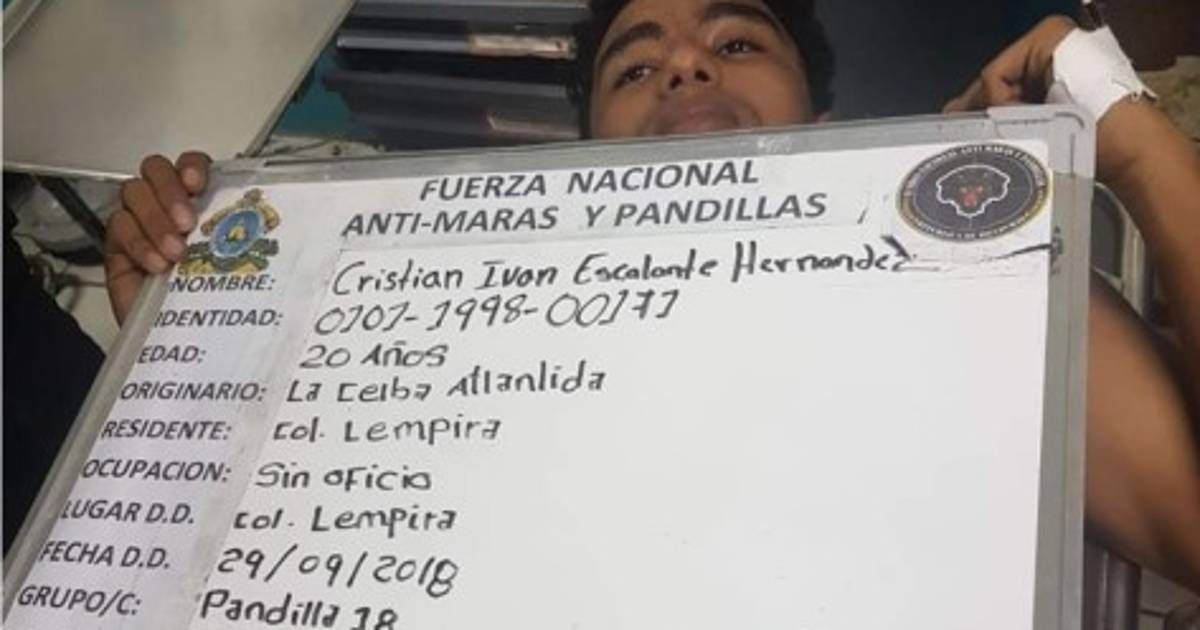 FUERZA NACIONAL
ANTI-MARAS Y PANDILLAS
NOMBRE: Cristian Ivon Escalante Hernandez
IDENTIDAD: 0101-1998-00171
EDAD: 20 AÑOS
ORIGINARIO: La Ceiba Atlantida
RESIDENTE: Col. Lempira
OCUPACION: Sin oficio
LUGAR D.D. Col. Lempira
FECHA D.D. 29/09/2018
GRUPO/C: Pandilla 18